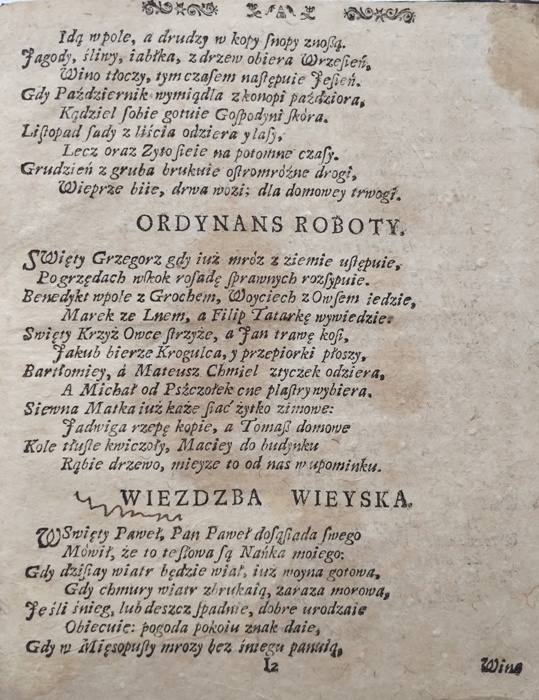 Idą w pole, a drudzy w kopy snopy znoszą.
Jagody, śliwy, iabłka, z drzew obiera Wrzesień,
Wino tłoczy, tym czasem następuie Jesień.
Gdy Październik wymiądla z konopi paździora,
Kądziel sobie gotuie Gospodyni skóra.
Listopad sady z liścia odziera y lasy,
Lecz oraz Zyto sieie na potomne czasy.
Grudzień z gruba brukuie ostromróźne drogi,
Wieprze biie, drwa wozi; dla domowey trwogi.
ORDYNANS ROBOTY.
SWięty Grzegorz gdy iuż mróz z ziemie ustępuie,
Po grzędach wskok rosadę sprawnych rozsypuie.
Benedykt w pole z Grochem, Woyciech z Owsem iedzie,
Marek ze Lnem, a Filip Tatarkę wywiedzie.
Swięty Krzyż Owce strzyże, a Jan trawę kosi,
Jakub bierze Krogulca, y przepiorki płoszy,
Bartłomiey, á Mateusz Chmiel z tyczek odziera,
A Michał od Pszczołek cne plastry wybiera.
Siewna Matka iuż kaze siać żytko zimowe:
Jadwiga rzepę kopie, a Tomasz domowe
Kole tłuste kwiczoły, Maciey do budynku
Rąbie drzewo, mieyże to od nas w upominku.
WIEZDZBA WIEYSKA.
WSwięty Paweł, Pan Paweł do sąsiada swego
Mówił, że to te słowa są Nańka moiego:
Gdy dzisiay wiatr będzie wiał, iuż woyna gotowa,
Gdy chmury wiatr zbrukaią, zaraza morowa,
Jeśli śnieg, lub deszcz spadnie, dobre urodzaie
Obiecuie: pogoda pokoiu znak daie,
Gdy w Mięsopusty mrozy bez śniegu panuią,
I2
Wina